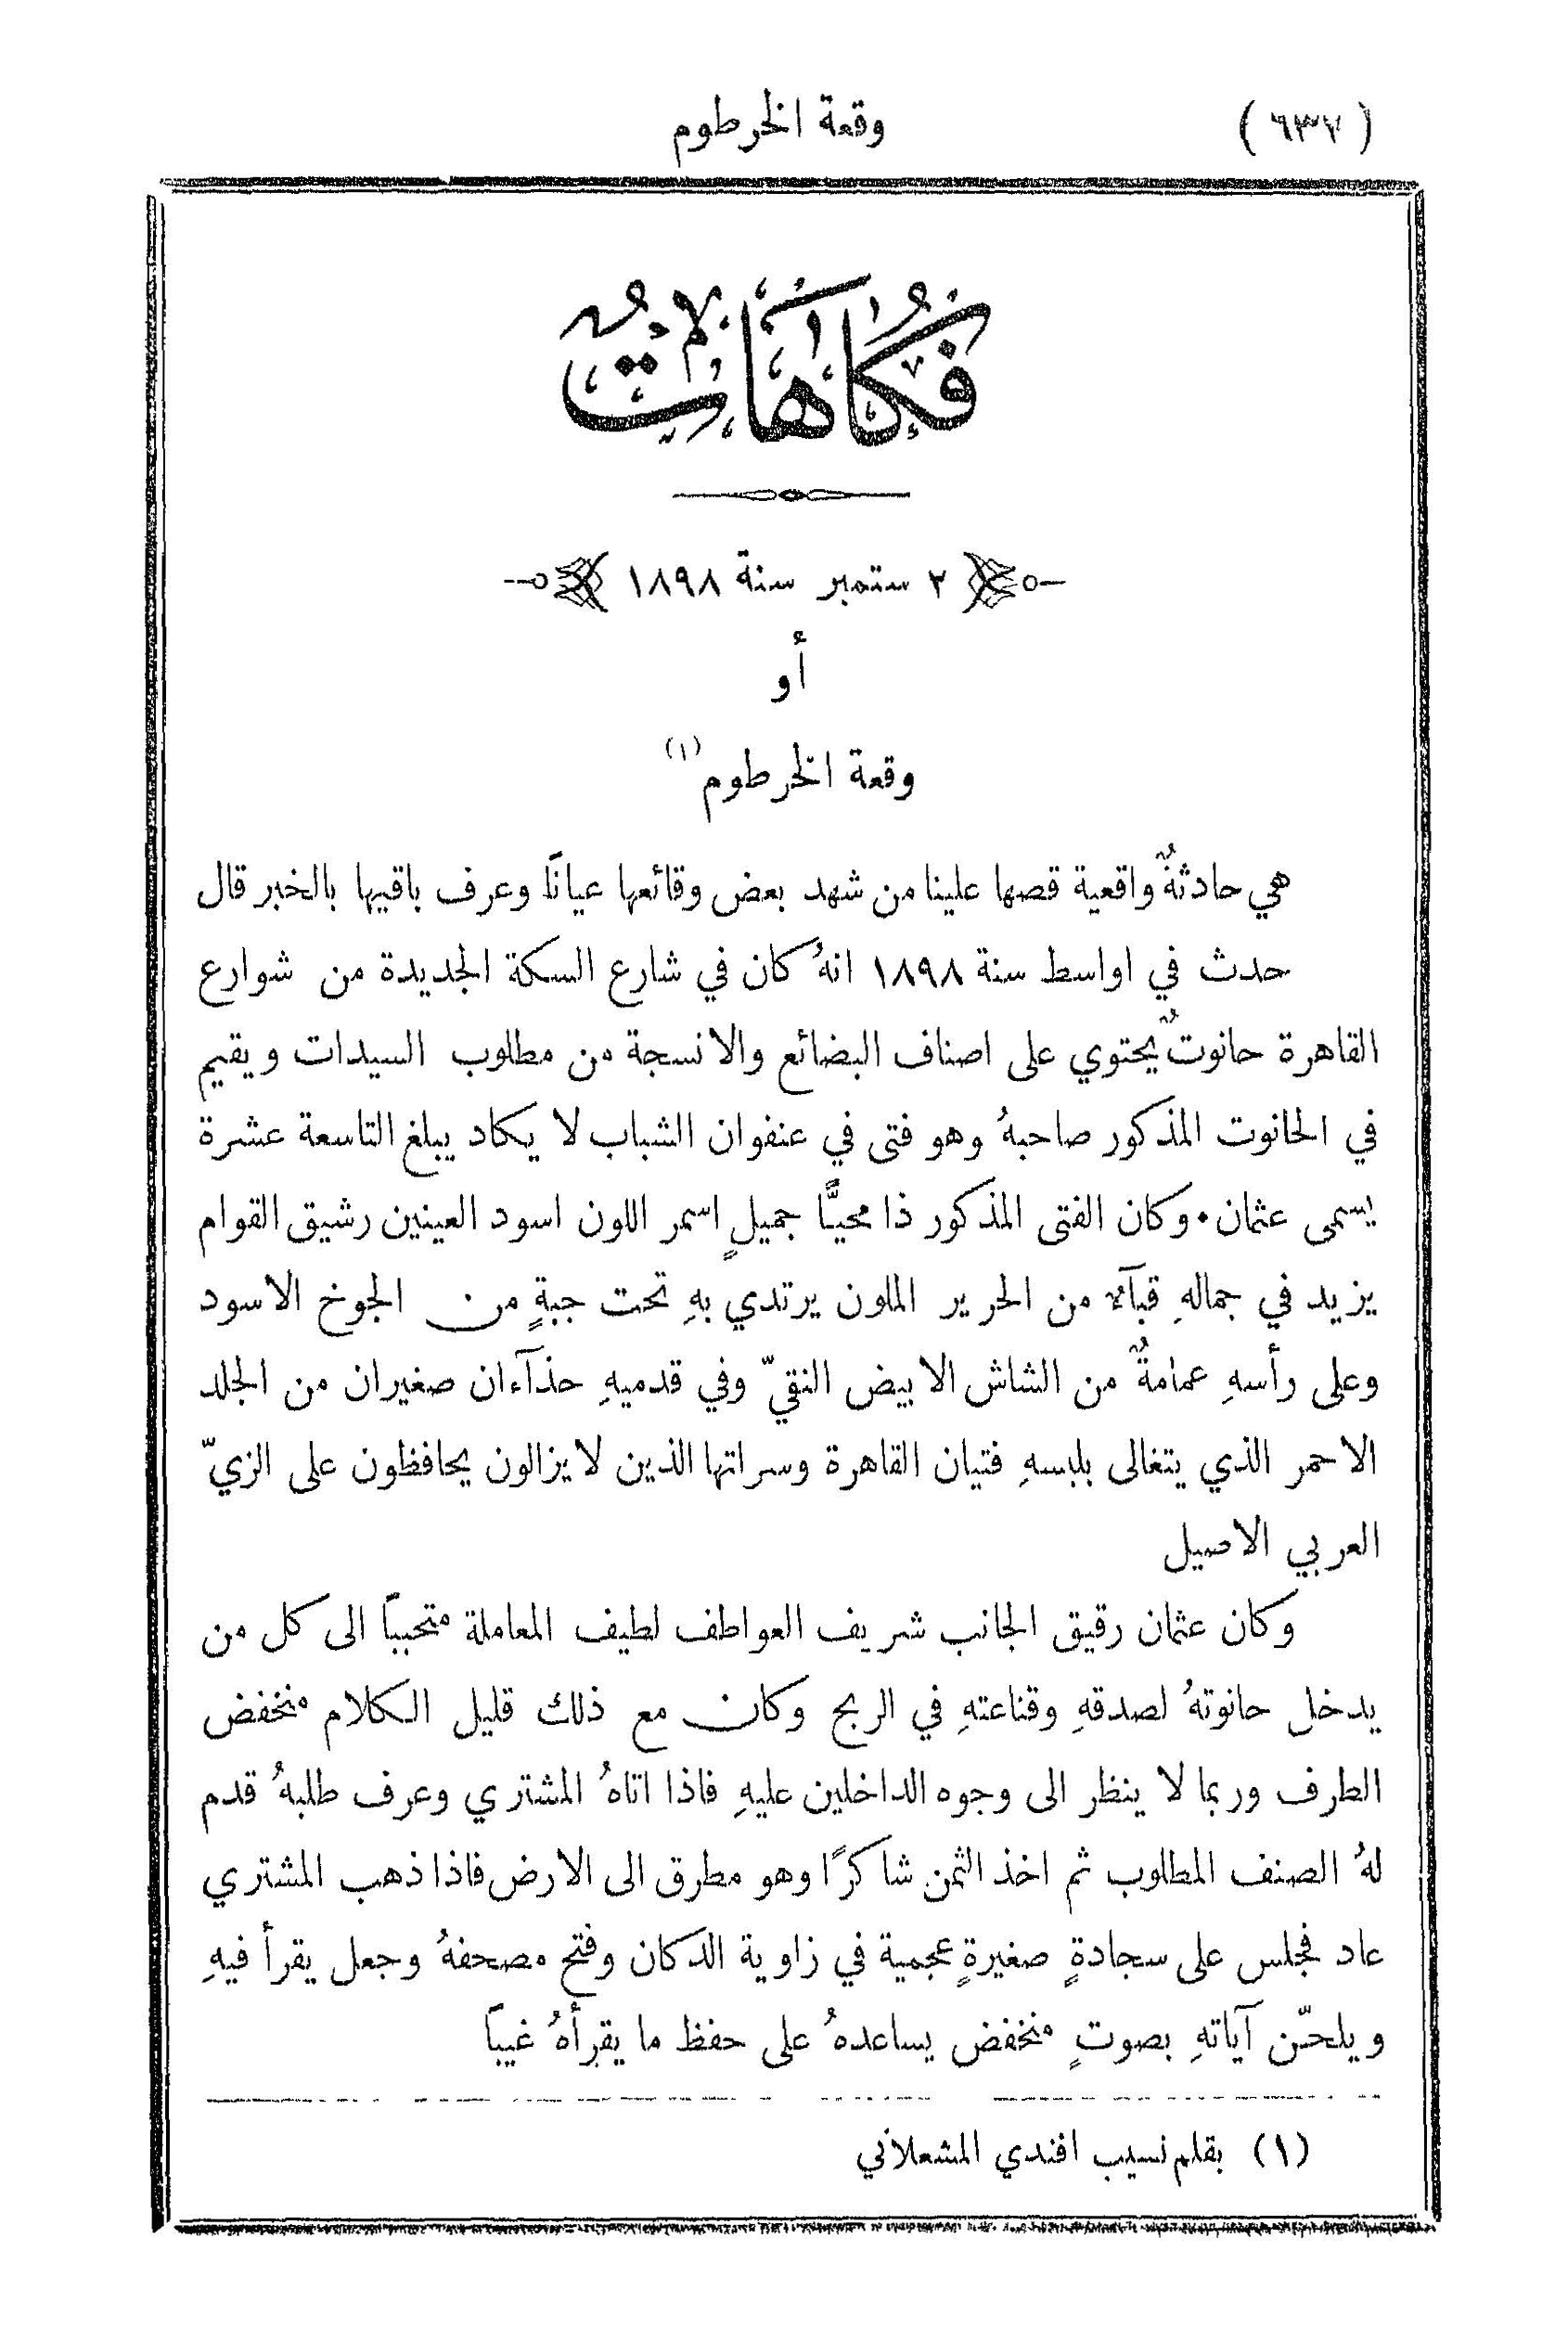 (٦٣٧) وقعة الخرطوم
فكاهات
٢ ستمبر سنة ١٨٩٨
أو
وقعة الخرطوم (١)
هي حادثةٌ واقعية قصها علينا من شهد بعض وقائعها عياناً وعرف باقيها بالخبر قال
حدث في اواسط سنة ١٨٩٨ انهُ كان في شارع السكة الجديدة من شوارع
القاهرة حانوتٌ يحتوي على اصناف البضائع والانسجة من مطلوب السيدات ويقيم
في الحانوت المذكور صاحبهُ وهو فتى في عنفوان الشباب لا يكاد يبلغ التاسعة عشرة
يسمى عثمان ٠ وكان الفتى المذكور ذا محيًّا جميلٍ اسمر اللون اسود العينين رشيق القوام
يزيد في جمالهِ قبآء من الحرير الملون يرتدي بهِ تحت جبةٍ من الجوخ الاسود
وعلى رأسهِ عمامةٌ من الشاش الابيض النقيّ وفي قدميهِ حذآءان صغيران من الجلد
الاحمر الذي يتغالى بلبسهِ فتيان القاهرة وسراتها الذين لا يزالون يحافظون على الزيّ
العربي الاصيل
وكان عثمان رقيق الجانب شريف العواطف لطيف المعاملة متحبباً الى كل من
يدخل حانوتهُ لصدقهِ وقناعتهِ في الربح وكان مع ذلك قليل الكلام منخفض
الطرف وربما لا ينظر الى وجوه الداخلين عليهِ فاذا اتاهُ المشتري وعرف طلبهُ قدم
لهُ الصنف المطلوب ثم اخذ الثمن شاكرًا وهو مطرق الى الارض فاذا ذهب المشتري
عاد فجلس على سجادةٍ صغيرةٍ عجمية في زاوية الدكان وفتح مصحفهُ وجعل يقرأ فيهِ
ويلحّن آياتهِ بصوتٍ منخفض يساعدهُ على حفظ ما يقرأهُ غيباً
(١) بقلم نسيب افندي المشعلاني